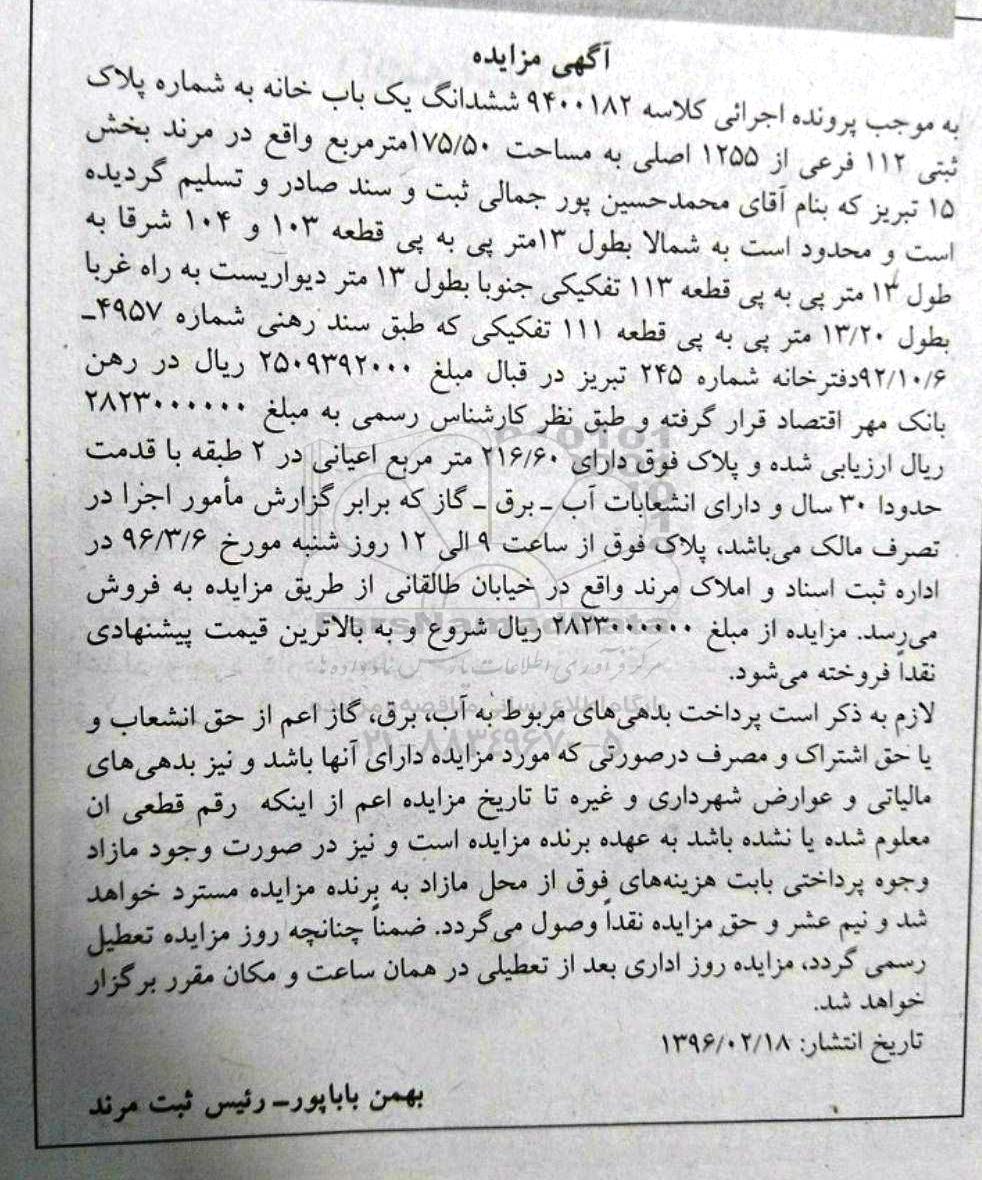 آگهی مزایده
به موجب پرونده اجرائی کلاسه ۹۴۰۰۱۸۲ ششدانگ یک باب خانه به شماره پلاک
ثبتی ۱۱۲ فرعی از ۱۲۵۵ اصلی به مساحت ۱۷۵/۵۰مترمربع واقع در مرند بخش
۱۵ تبریز که بنام آقای محمدحسین پور جمالی ثبت و سند صادر و تسلیم گردیده
است و محدود است به شمالا بطول ۱۳متر پی به پی قطعه ۱۰۳ و ۱۰۴ شرقا به
طول ۱۳ متر پی به پی قطعه ۱۱۳ تفکیکی جنوبا بطول ۱۳ متر دیواریست به راه غربا
بطول ۱۳/۲۰ متر پی به پی قطعه ۱۱۱ تفکیکی که طبق سند رهنی شماره ۴۹۵۷ـ
۹۲/۱۰/۶دفترخانه شماره ۲۴۵ تبریز در قبال مبلغ ۲۵۰۹۳۹۲۰۰۰ ریال در رهن
بانک مهر اقتصاد قرار گرفته و طبق نظر کارشناس رسمی به مبلغ ۲۸۲۳۰۰۰۰۰۰
ریال ارزیابی شده و پلاک فوق دارای ۲۱۶/۶۰ متر مربع اعیانی در ۲ طبقه با قدمت
حدودا ۳۰ سال و دارای انشعابات آب ـ برق ـ گاز که برابر گزارش مأمور اجرا در
تصرف مالک می‌باشد، پلاک فوق از ساعت ۹ الی ۱۲ روز شنبه مورخ ۹۶/۳/۶ در
اداره ثبت اسناد و املاک مرند واقع در خیابان طالقانی از طریق مزایده به فروش
می‌رسد. مزایده از مبلغ ۲۸۲۳۰۰۰۰۰۰ ریال شروع و به بالاترین قیمت پیشنهادی
نقداً فروخته می‌شود.
لازم به ذکر است پرداخت بدهی‌های مربوط به آب، برق، گاز اعم از حق انشعاب و
یا حق اشتراک و مصرف درصورتی که مورد مزایده دارای آنها باشد و نیز بدهی‌های
مالیاتی و عوارض شهرداری و غیره تا تاریخ مزایده اعم از اینکه رقم قطعی ان
معلوم شده یا نشده باشد به عهده برنده مزایده است و نیز در صورت وجود مازاد
وجوه پرداختی بابت هزینه‌های فوق از محل مازاد به برنده مزایده مسترد خواهد
شد و نیم عشر و حق مزایده نقداً وصول می‌گردد. ضمناً چنانچه روز مزایده تعطیل
رسمی گردد، مزایده روز اداری بعد از تعطیلی در همان ساعت و مکان مقرر برگزار
خواهد شد.
تاریخ انتشار: ۱۳۹۶/۰۲/۱۸
بهمن باباپورـ رئیس ثبت مرند
ParsNamadData